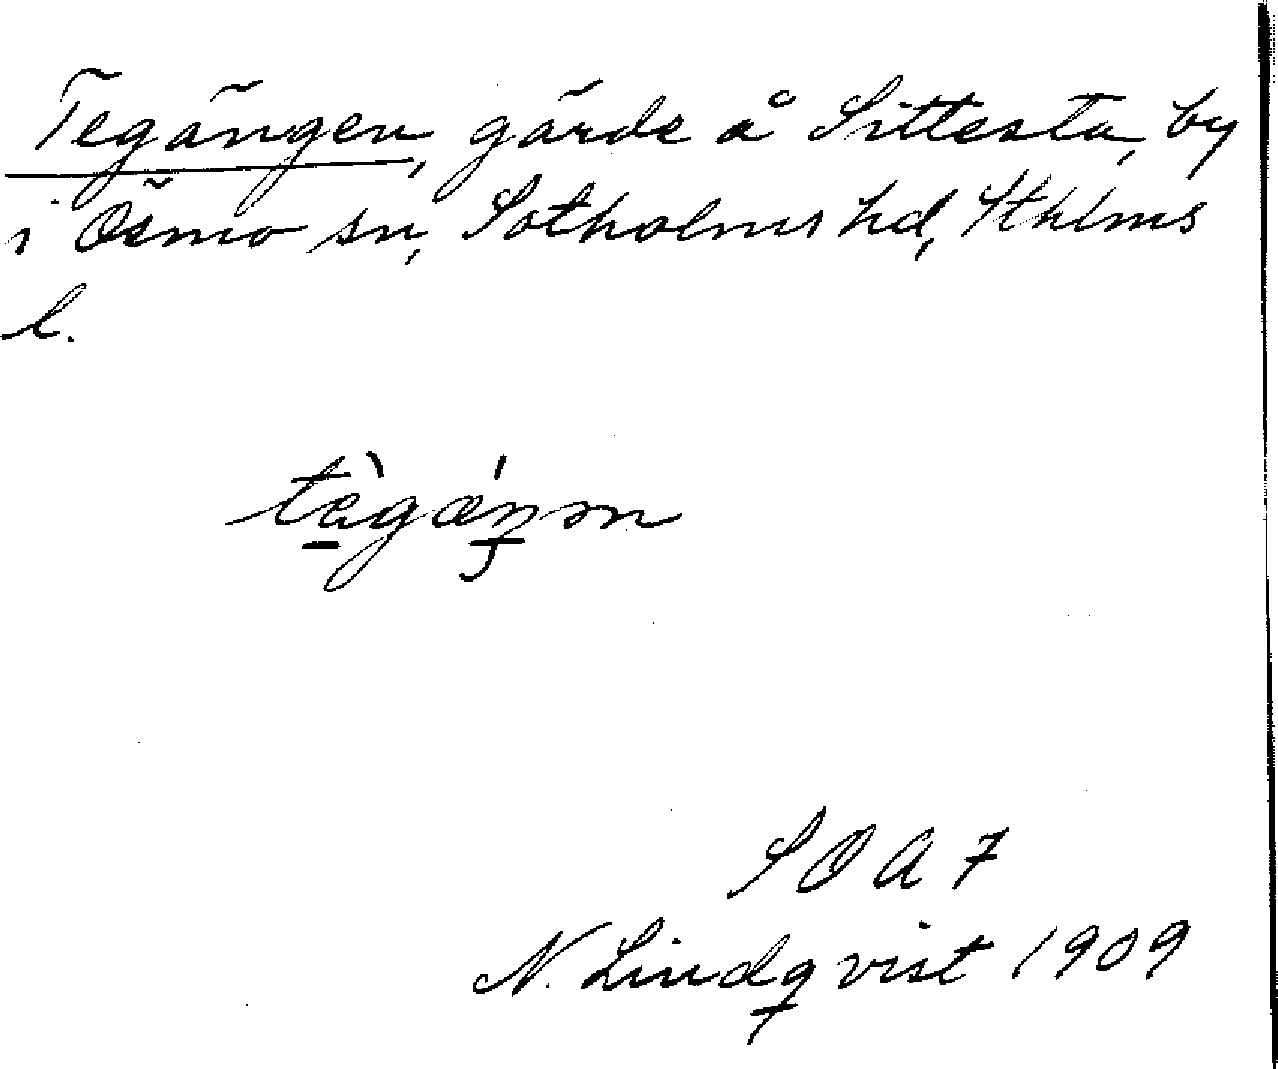 Tegängen, gärde å Sittesta, by
i Ösmo sn, Sotholms hd, Sthlms
l.
tè̱gǽŋən
SOA 7
N. Lindqvist 1909